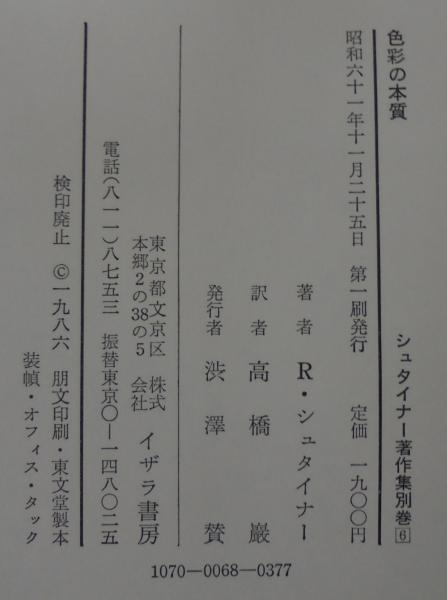 色彩の本質
シュタイナー著作集別巻6
昭和六十一年十一月二十五日　第一刷発行　定価　一九〇〇円
著者　R・シュタイナー
訳者　高橋　巖
発行者　渋澤　賛
東京都文京区本郷2の38の5
株式会社　イザラ書房
電話(八一一)八七五三　振替東京〇―一四八〇二五
検印廃止　©一九八六　朋文印刷・東文堂製本
装幀・オフィス・タック
1070―0068―0377